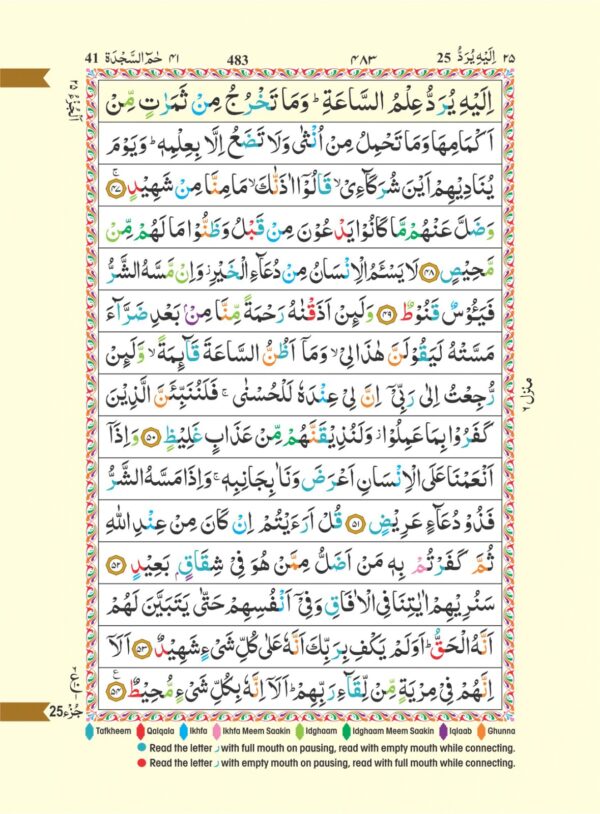 41 حٰمٓ السَّجْدَة ٤١ 483 ٤٨٣ 25 اِلَيْهِ يُرَدُّ ٢٥
اِلَيْهِ يُرَدُّ عِلْمُ السَّاعَةِ ؕ وَمَا تَخْرُجُ مِنْ ثَمَرٰتٍ مِّنْ
اَكْمَامِهَا وَمَا تَحْمِلُ مِنْ اُنْثٰى وَلَا تَضَعُ اِلَّا بِعِلْمِهٖ ؕ وَيَوْمَ
يُنَادِيْهِمْ اَيْنَ شُرَكَآءِيْ ۙ قَالُوْۤا اٰذَنّٰكَ ۙ مَا مِنَّا مِنْ شَهِيْدٍ ۚ ﴿٤٧﴾
وَضَلَّ عَنْهُمْ مَّا كَانُوْا يَدْعُوْنَ مِنْ قَبْلُ وَظَنُّوْا مَا لَهُمْ مِّنْ
مَّحِيْصٍ ﴿٤٨﴾ لَا يَسْـَٔمُ الْاِنْسَانُ مِنْ دُعَآءِ الْخَيْرِ ؗ وَاِنْ مَّسَّهُ الشَّرُّ
فَيَـُٔوْسٌ قَنُوْطٌ ﴿٤٩﴾ وَلَىِٕنْ اَذَقْنٰهُ رَحْمَةً مِّنَّا مِنْۢ بَعْدِ ضَرَّآءَ
مَسَّتْهُ لَيَقُوْلَنَّ هٰذَا لِيْ ۙ وَمَاۤ اَظُنُّ السَّاعَةَ قَآىِٕمَةً ۙ وَّلَىِٕنْ
رُّجِعْتُ اِلٰى رَبِّيْۤ اِنَّ لِيْ عِنْدَهٗ لَلْحُسْنٰى ۚ فَلَنُنَبِّئَنَّ الَّذِيْنَ
كَفَرُوْا بِمَا عَمِلُوْا ؗ وَلَنُذِيْقَنَّهُمْ مِّنْ عَذَابٍ غَلِيْظٍ ﴿٥٠﴾ وَاِذَاۤ
اَنْعَمْنَا عَلَى الْاِنْسَانِ اَعْرَضَ وَنَاٰ بِجَانِبِهٖ ۚ وَاِذَا مَسَّهُ الشَّرُّ
فَذُوْ دُعَآءٍ عَرِيْضٍ ﴿٥١﴾ قُلْ اَرَءَيْتُمْ اِنْ كَانَ مِنْ عِنْدِ اللّٰهِ
ثُمَّ كَفَرْتُمْ بِهٖ مَنْ اَضَلُّ مِمَّنْ هُوَ فِيْ شِقَاقٍۭ بَعِيْدٍ ﴿٥٢﴾
سَنُرِيْهِمْ اٰيٰتِنَا فِي الْاٰفَاقِ وَفِيْۤ اَنْفُسِهِمْ حَتّٰى يَتَبَيَّنَ لَهُمْ
اَنَّهُ الْحَقُّ ؕ اَوَلَمْ يَكْفِ بِرَبِّكَ اَنَّهٗ عَلٰى كُلِّ شَيْءٍ شَهِيْدٌ ﴿٥٣﴾ اَلَاۤ
اِنَّهُمْ فِيْ مِرْيَةٍ مِّنْ لِّقَآءِ رَبِّهِمْ ؕ اَلَاۤ اِنَّهٗ بِكُلِّ شَيْءٍ مُّحِيْطٌ ﴿٥٤﴾
منزل ٦
25 جُزء
Tafkheem Qalqala Ikhfa Ikhfa Meem Saakin Idghaam Idghaam Meem Saakin Iqlaab Ghunna
Read the letter ر with full mouth on pausing, read with empty mouth while connecting.
Read the letter ر with empty mouth on pausing, read with full mouth while connecting.